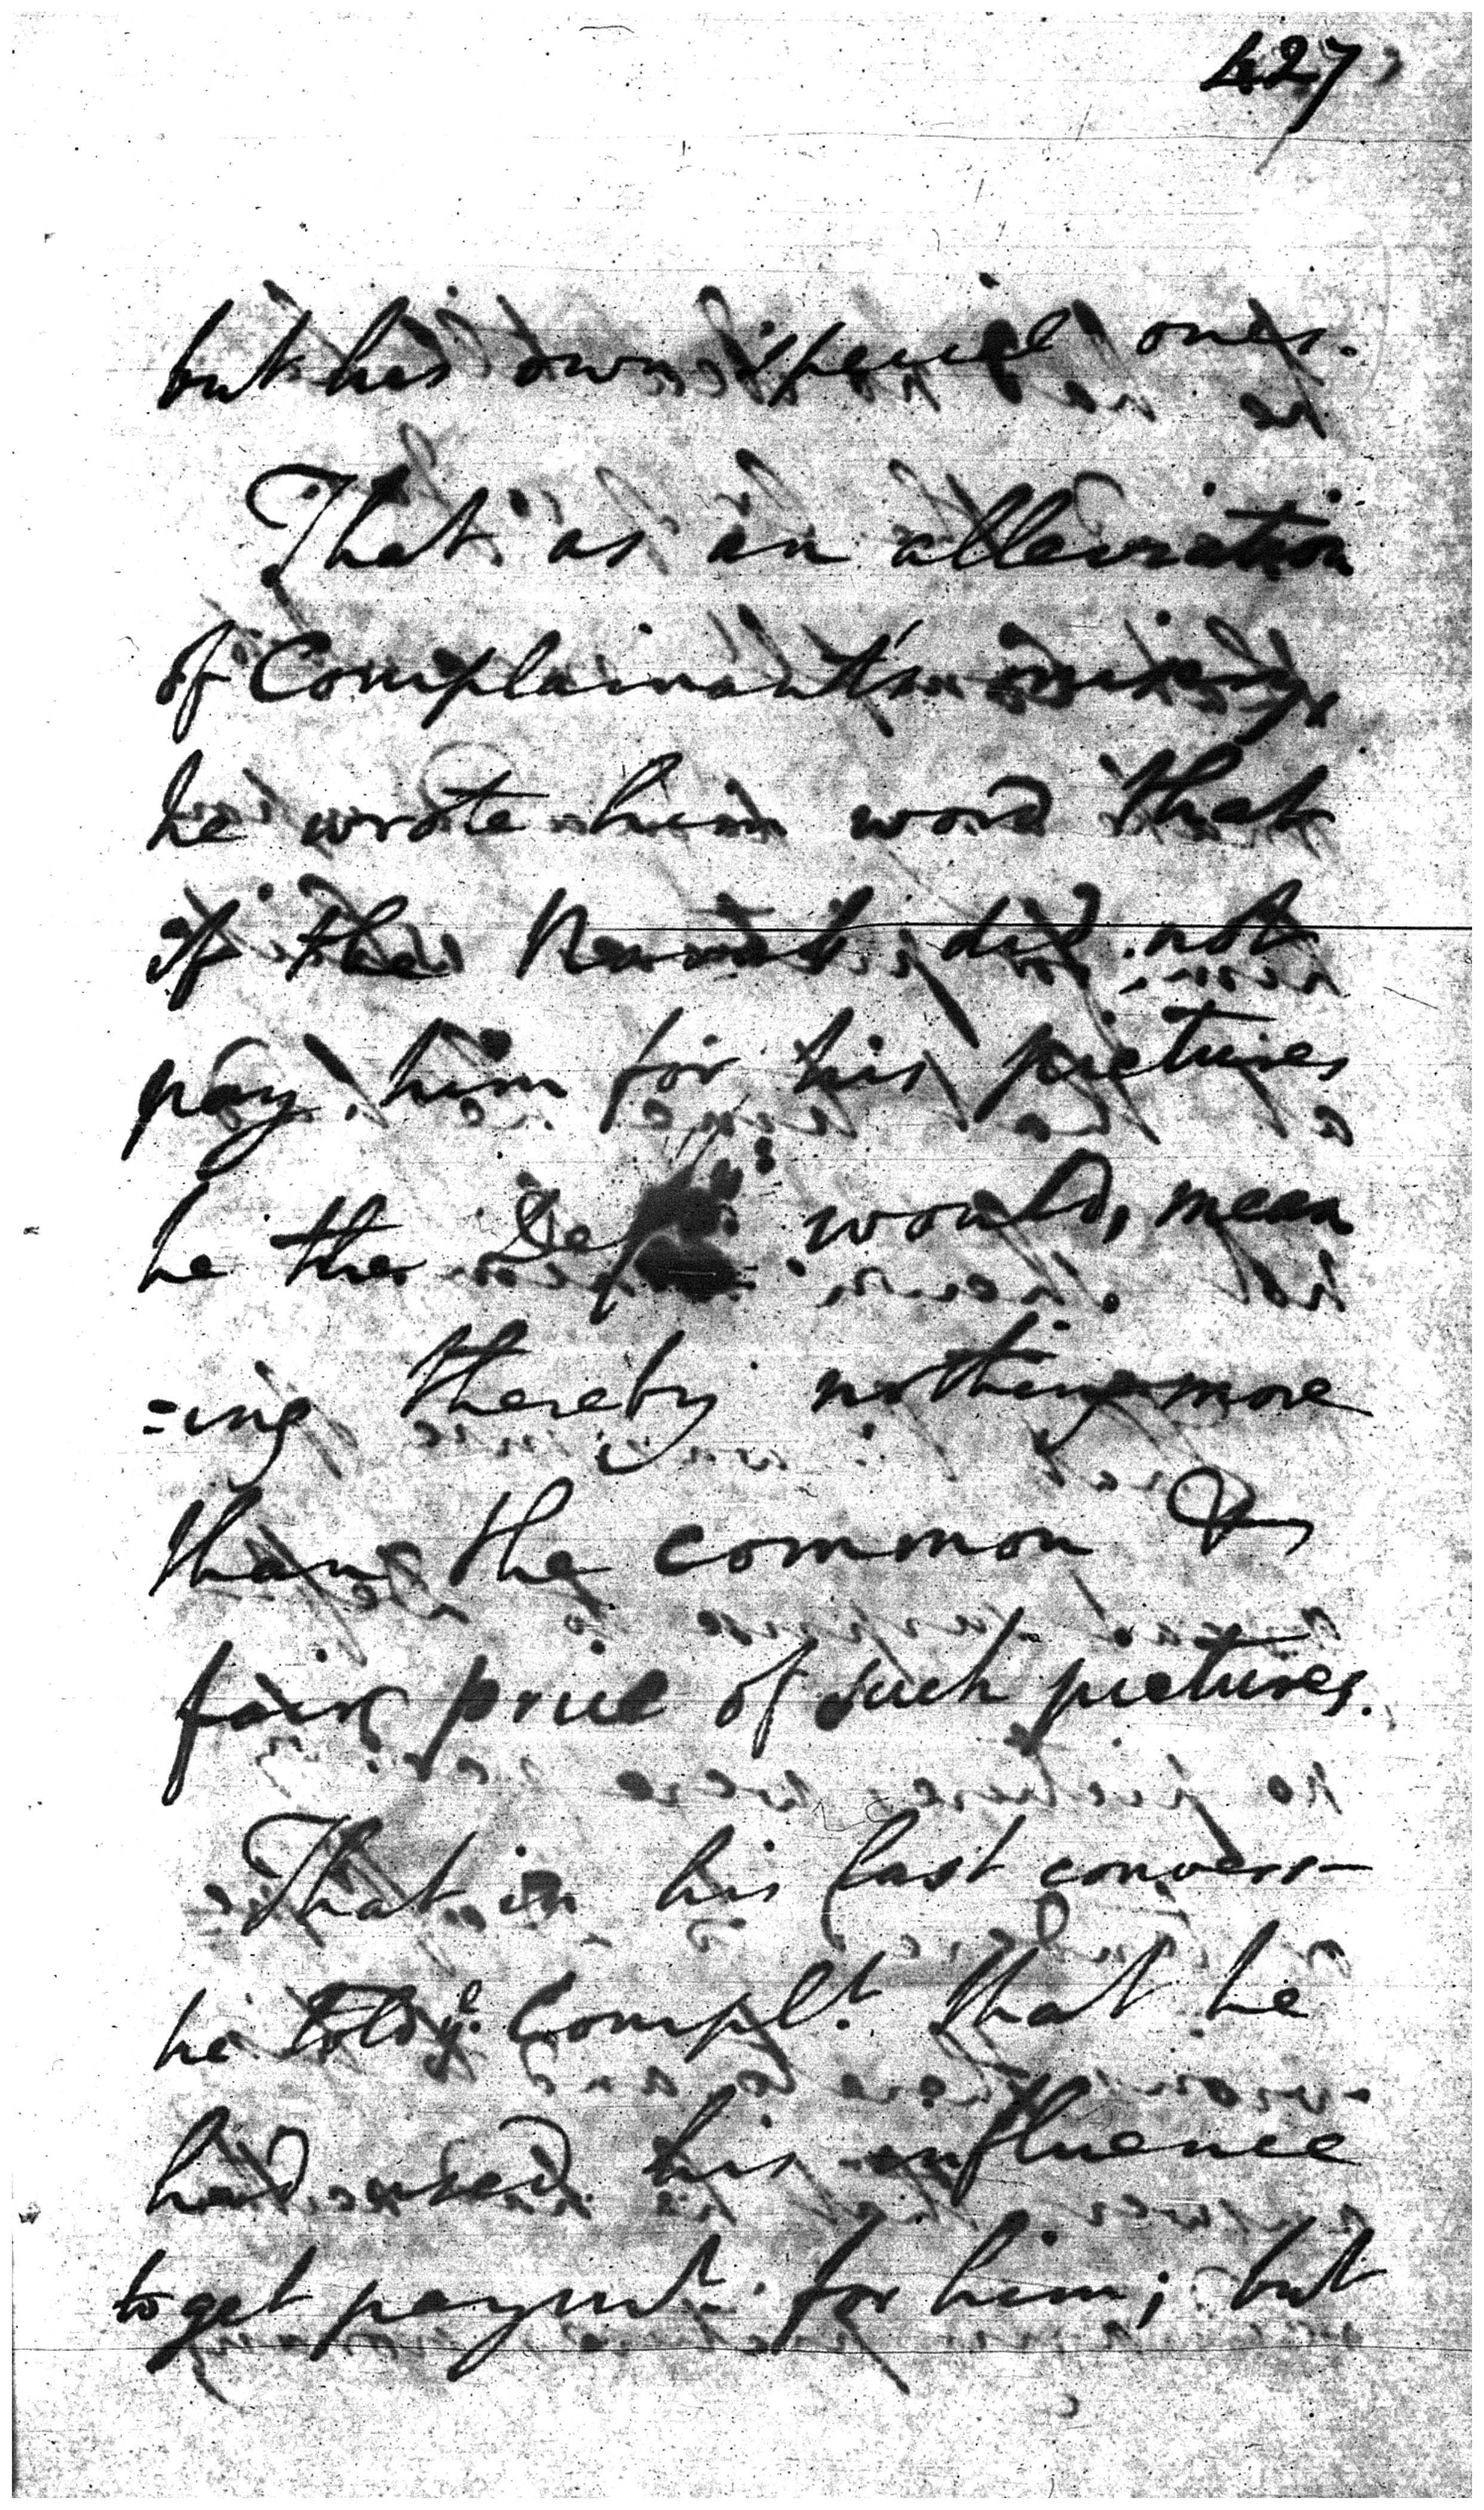 427
but his own special ones.
That as an alleviation
of Complainant's misery,
he wrote him word that
if the Nawab did not
pay him for his pictures
he the would, mean
=ing thereby nothing more
than the common &
fair price of such pictures.
That in his last convers-
he told ye. Complt. that he
had used his influence
to get paymt. for him; but